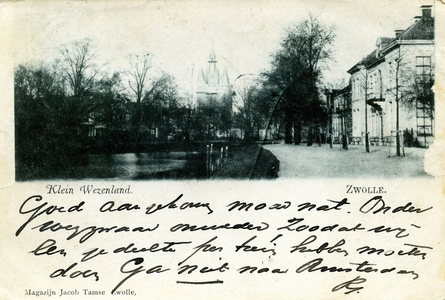 Klein Wezenland. ZWOLLE.
Goed aangekomen maar nat. Onder
weg
een gedeelte per trein hebben moeten
doen Ga niet naar Amsterdam
Magazijn Jacob Tamse Zwolle,